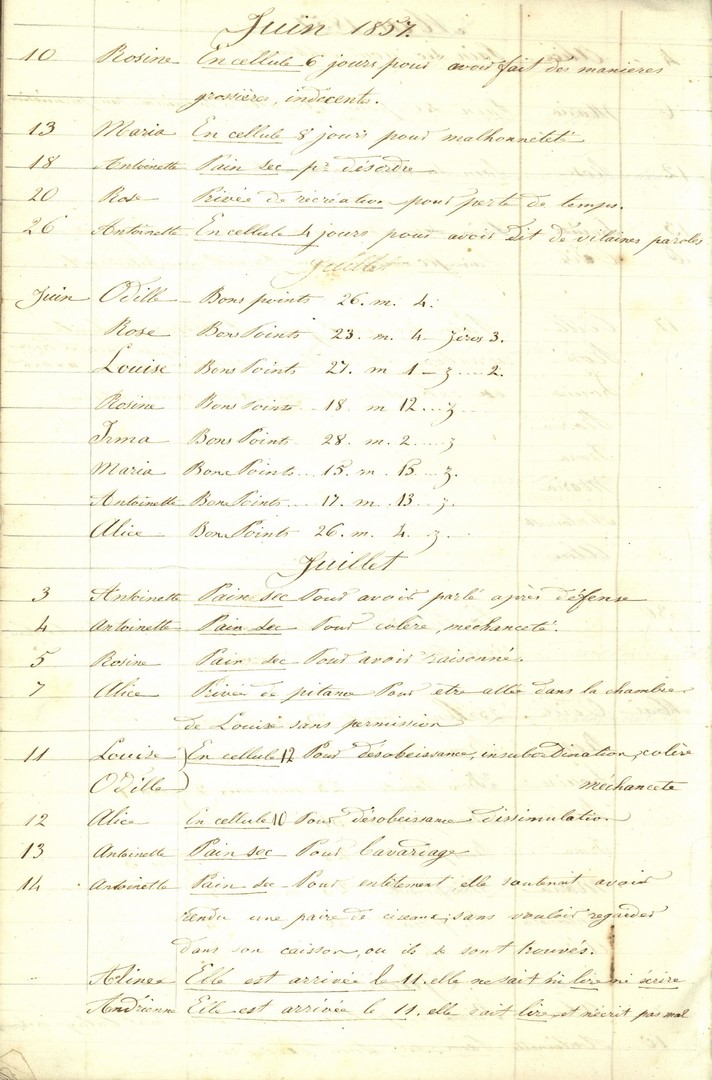 Juin 1857.
10 Rosine En cellule 6 jours pour avoir fait des manieres
grossières, indecents.
13 Maria En cellule 8 jours pour malhonnêteté
18 Antoinette Pain sec pr désordre
20 Rose Privée de récréation pour perte de temps.
26 Antoinette En cellule 4 jours pour avoir dit de vilaines paroles
Juillet
Juin Odille Bons points 26. m. 4.
Rose Bons Points 23. m. 4 zéros 3.
Louise Bons Points 27. m 1 z 2.
Rosine Bons Points 18 m 12 z
Irma Bons Points 28. m. 2 z
Maria Bons Points 15. m. 15 z.
Antoinette Bons Points 17. m. 13 z.
Alice Bons Points 26. m. 4. z
Juillet
3 Antoinette Pain sec Pour avoir parlé après défense
4 Antoinette Pain sec Pour colère, méchanceté.
5 Rosine Pain sec Pour avoir raisonné
7 Alice Privée de pitance Pour etre allée dans la chambre
de Louise sans permission
11 Louise } En cellule 12 Pour désobeissance, insubordination, colère
Odille } méchanceté
12 Alice En cellule 10 Pour désobeissance dissimulation
13 Antoinette Pain sec Pour bavardage
14 Antoinette Pain sec Pour entêtement, elle soutenait avoir
rendu une paire de ciseaux, sans vouloir regarder
dans son caisson, ou ils se sont trouvés.
Alinea Elle est arrivée le 11. elle ne sait ni lire ni écrire
Andrienne Elle est arrivée le 11. elle sait lire et n'écrit pas mal